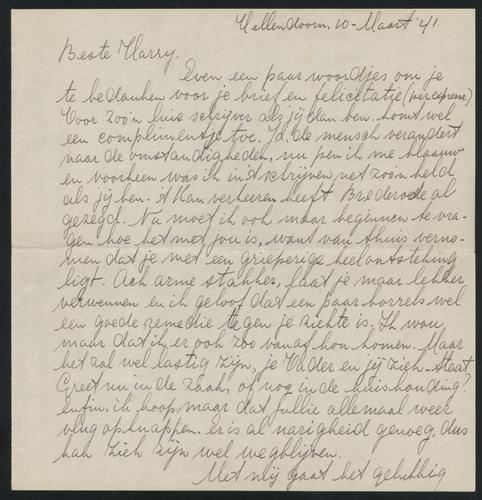 Hellendoorn, 10 - Maart '41
Beste Harry.
Even een paar woordjes om je
te bedanken voor je brief en felicitatie (per expresse)
Voor zoo'n luie schrijver als jij dan ben. komt wel
een complimentje toe. Ja, de mensch verandert
naar de omstandigheden, nu pen ik me blaauw
en voorheen was ik in 't schrijven net zoo'n held
als jij ben. it kan verkeeren heeft Brederode al
gezegd. Nu moet ik ook maar beginnen te vra-
gen hoe het met jou is, want van thuis verno-
men dat je met een grieperige keelontsteking
ligt. Ach arme stakker, laat je maar lekker
verwennen en ik geloof dat een paar borrels wel
een goede remedie tegen je ziekte is. Ik wou
maar dat ik er ook zoo vanaf kon komen. Maar
het zal wel lastig zijn, je Vader en jij ziek. Staat
Greet nu in de zaak, of nog in de huishouding?
Enfin. ik hoop maar dat jullie allemaal weer
vlug opknappen. er is al narigheid genoeg, dus
kan ziek zijn wel wegblijven.
Met mij gaat het gelukkig